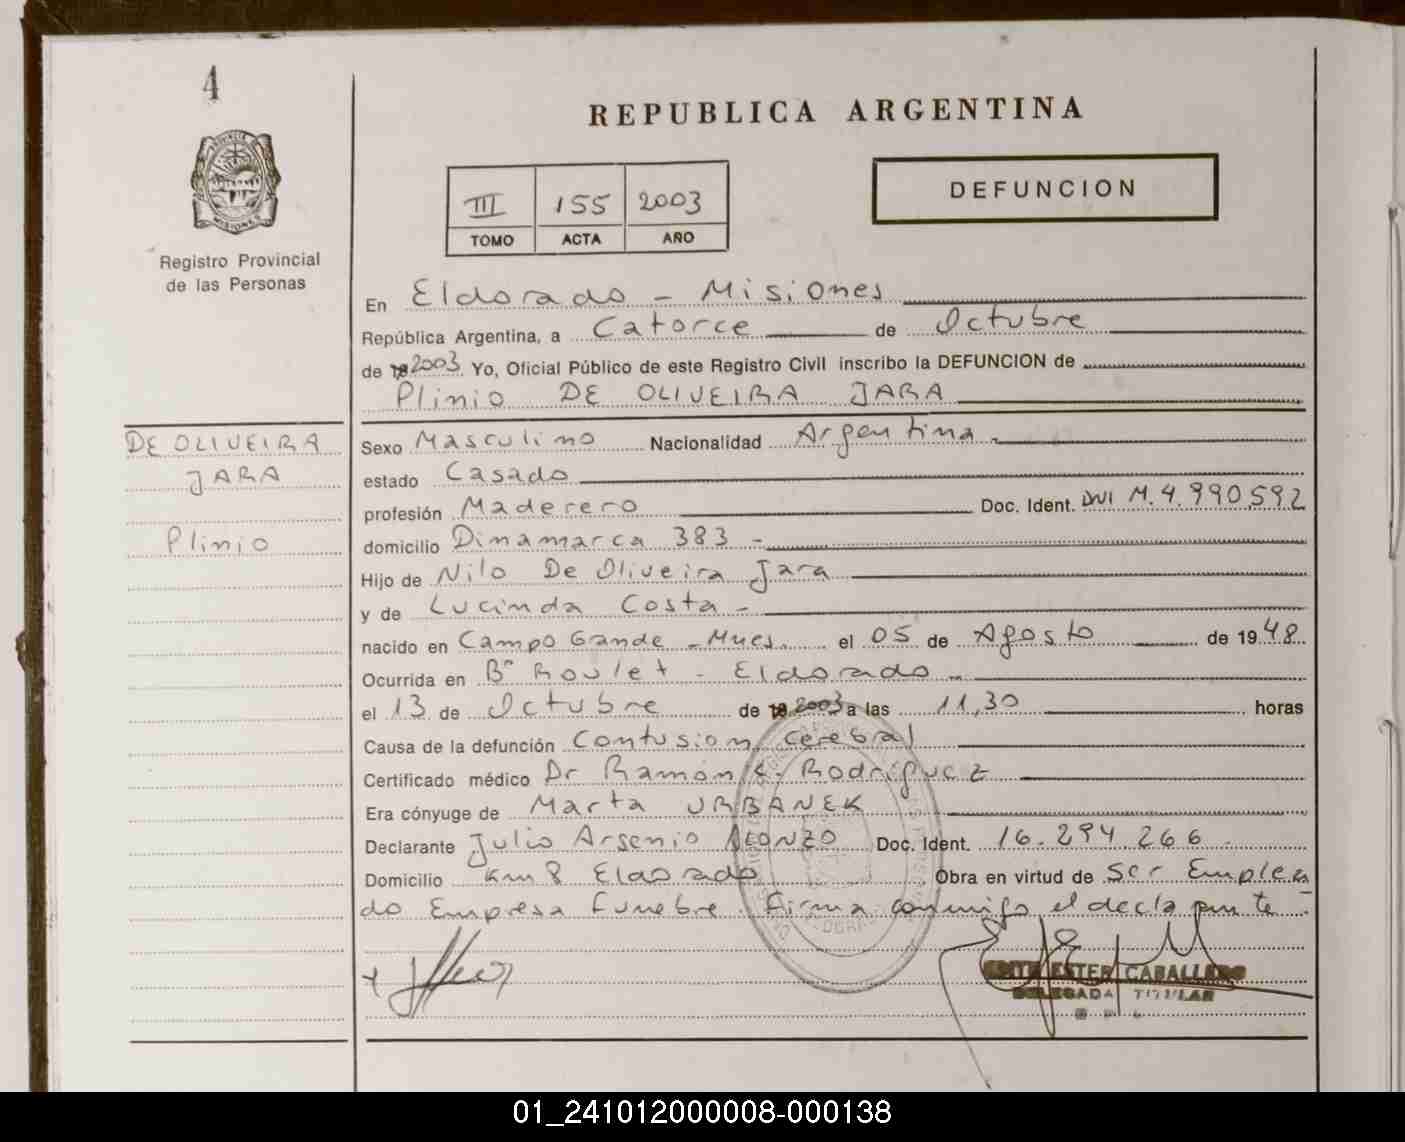 4
REPUBLICA ARGENTINA
III 155 2003
TOMO ACTA AÑO
DEFUNCION
Registro Provincial
de las Personas
En Eldorado - Misiones
República Argentina, a Catorce de Octubre
de 2003 Yo, Oficial Público de este Registro Civil inscribo la DEFUNCION de
Plinio DE OLIVEIRA JARA
DE OLIVEIRA
JARA
Plinio
Sexo Masculino Nacionalidad Argentina
estado Casado
profesión Maderero Doc. Ident. DNI M. 4.990.592
domicilio Dinamarca 383 -
Hijo de Nilo De Oliveira Jara
y de Lucinda Costa -
nacido en Campo Grande - Mnes. el 05 de Agosto de 1948
Ocurrida en Bº Roulet - Eldorado -
el 13 de Octubre de 2003 a las 11,30 horas
Causa de la defunción Contusion cerebral
Certificado médico Dr Ramón Rodríguez
Era cónyuge de Marta URBANEK
Declarante Julio Arsenio ALONZO Doc. Ident. 16.294.266
Domicilio Km 8 Eldorado Obra en virtud de Ser Emplea
do Empresa Funebre. Firma conmigo el declarante -
ESTER CABALLERO
DELEGADA TITULAR
01_241012000008-000138